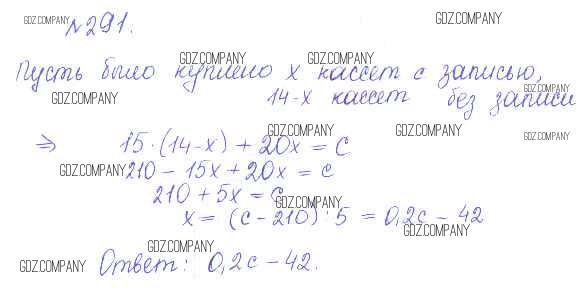 №291.
GDZ.COMPANY GDZ.COMPANY
GDZ.COMPANY GDZ.COMPANY
Пусть было куплено x кассет с записью,
GDZ.COMPANY
GDZ.COMPANY 14-x кассет без записи
GDZ.COMPANY GDZ.COMPANY GDZ.COMPANY
⇒ 15·(14-x) + 20x = c
GDZ.COMPANY 210 - 15x + 20x = c
210 + 5x = c
GDZ.COMPANY
x = (c - 210) : 5 = 0,2c - 42
GDZ.COMPANY
GDZ.COMPANY
GDZ.COMPANY Ответ: 0,2c - 42.